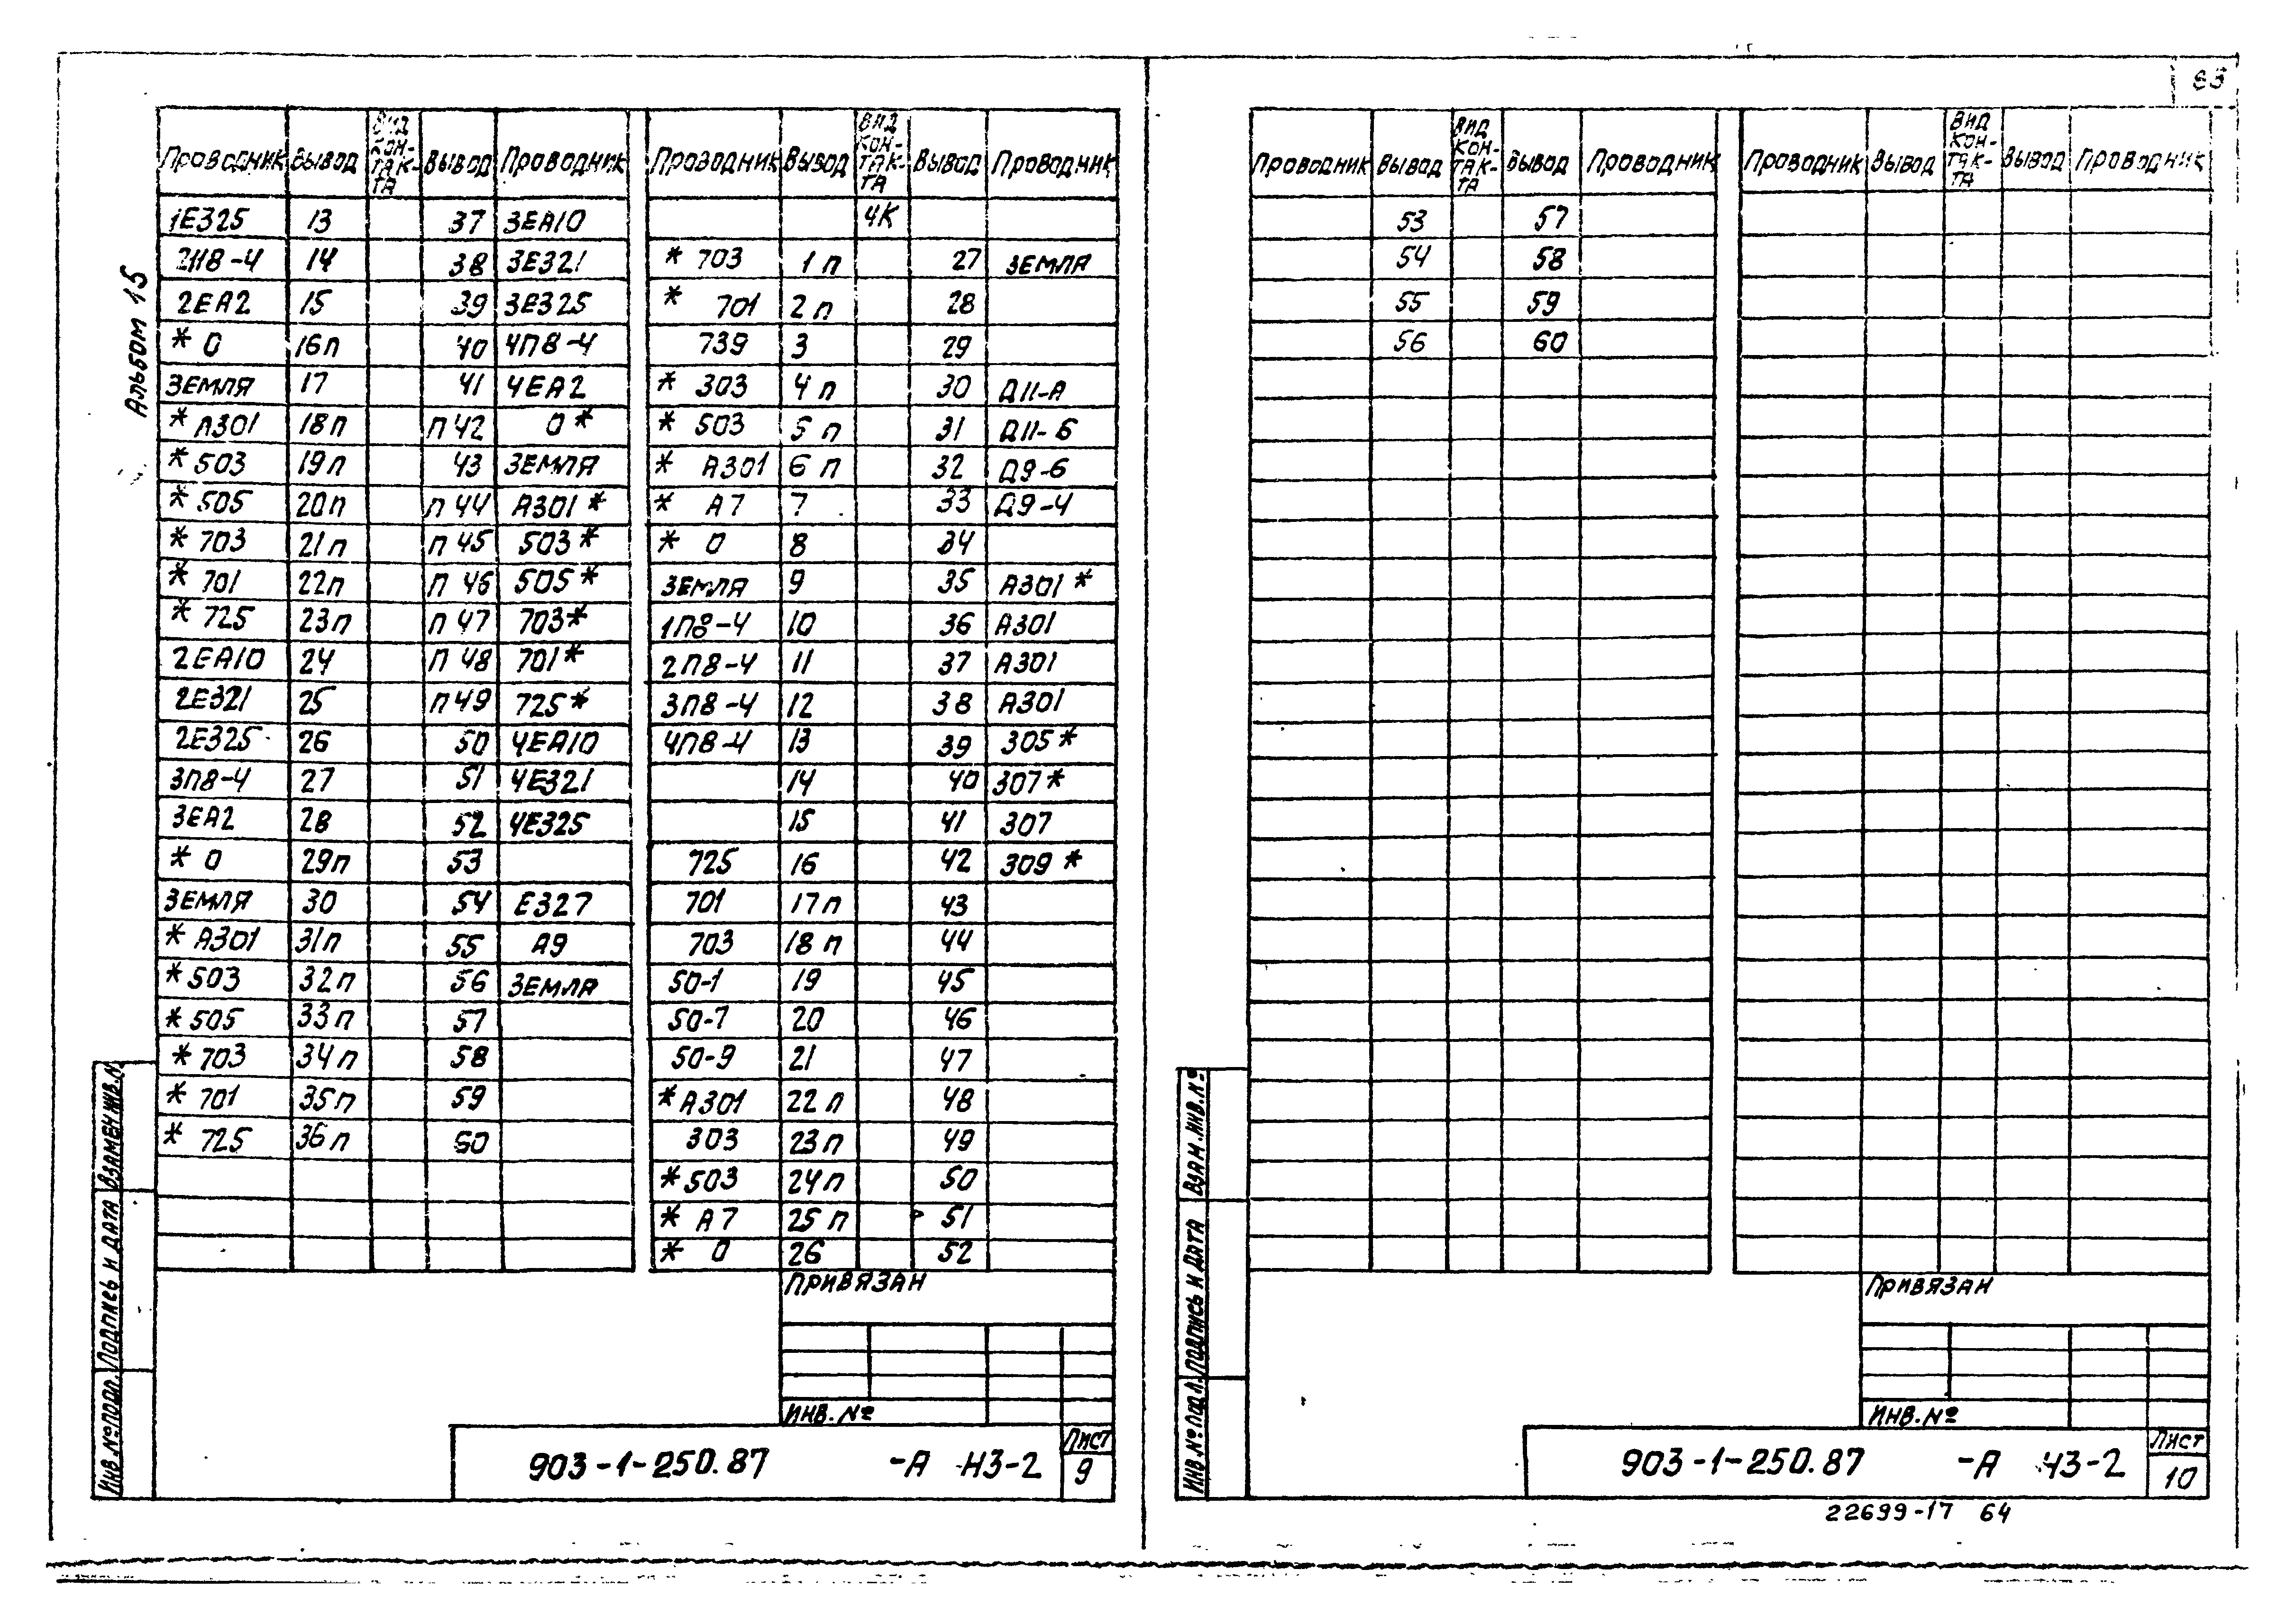 83
Альбом 15
Проводник Вывод Вид кон-такта Вывод Проводник
1Е325 13 37 3ЕА10
2П8-4 14 38 3Е321
2ЕА2 15 39 3Е325
* 0 16п 40 4П8-4
Земля 17 41 4ЕА2
* А301 18п п 42 0 *
* 503 19п 43 Земля
* 505 20п п 44 А301 *
* 703 21п п 45 503 *
* 701 22п п 46 505 *
* 725 23п п 47 703 *
2ЕА10 24 п 48 701 *
2Е321 25 п 49 725 *
2Е325 26 50 4ЕА10
3П8-4 27 51 4Е321
3ЕА2 28 52 4Е325
* 0 29п 53
Земля 30 54 Е327
* А301 31п 55 А9
* 503 32п 56 Земля
* 505 33п 57
* 703 34п 58
* 701 35п 59
* 725 36п 60
Проводник Вывод Вид кон-такта Вывод Проводник
4К
* 703 1 п 27 Земля
* 701 2 п 28
739 3 29
* 303 4 п 30 Д11-А
* 503 5 п 31 Д11-Б
* А301 6 п 32 Д9-6
* А7 7 33 Д9-4
* 0 8 34
Земля 9 35 А301 *
1П8-4 10 36 А301
2П8-4 11 37 А301
3П8-4 12 38 А301
4П8-4 13 39 305 *
14 40 307 *
15 41 307
725 16 42 309 *
701 17п 43
703 18 п 44
50-1 19 45
50-7 20 46
50-9 21 47
* А301 22 п 48
303 23п 49
* 503 24п 50
* А7 25 п 51
* 0 26 52
Привязан
Инв. №
903-1-250.87 -А Н3-2
Лист
9
Инв. № подл.
Подпись и дата
Взамен инв. №
Проводник Вывод Вид кон-такта Вывод Проводник
53 57
54 58
55 59
56 60
Проводник Вывод Вид кон-такта Вывод Проводник
Привязан
Инв. №
903-1-250.87 -А Ч3-2
Лист
10
Инв. № подл.
Подпись и дата
Взам. инв. №
22699-17 64